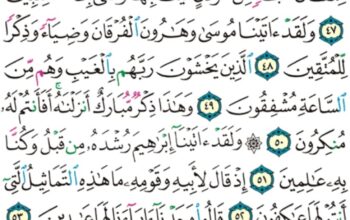 ٤٧ وَلَقَدْ ءَاتَيْنَا مُوسَىٰ وَهَٰرُونَ ٱلْفُرْقَانَ وَضِيَآءً وَذِكْرًا
لِّلْمُتَّقِينَ ٤٨ ٱلَّذِينَ يَخْشَوْنَ رَبَّهُم بِٱلْغَيْبِ وَهُم مِّنَ
ٱلسَّاعَةِ مُشْفِقُونَ ٤٩ وَهَٰذَا ذِكْرٌ مُّبَارَكٌ أَنزَلْنَٰهُ ۚ أَفَأَنتُمْ لَهُۥ
مُنكِرُونَ ٥٠ ۞ وَلَقَدْ ءَاتَيْنَآ إِبْرَٰهِيمَ رُشْدَهُۥ مِن قَبْلُ وَكُنَّا
بِهِۦ عَٰلِمِينَ ٥١ إِذْ قَالَ لِأَبِيهِ وَقَوْمِهِۦ مَا هَٰذِهِ ٱلتَّمَاثِيلُ ٱلَّتِىٓ
أَنتُمْ لَهَا عَٰكِفُونَ ٥٢ قَالُوا۟ وَجَدْنَآ ءَابَآءَنَا لَهَا عَٰبِدِينَ ٥٣